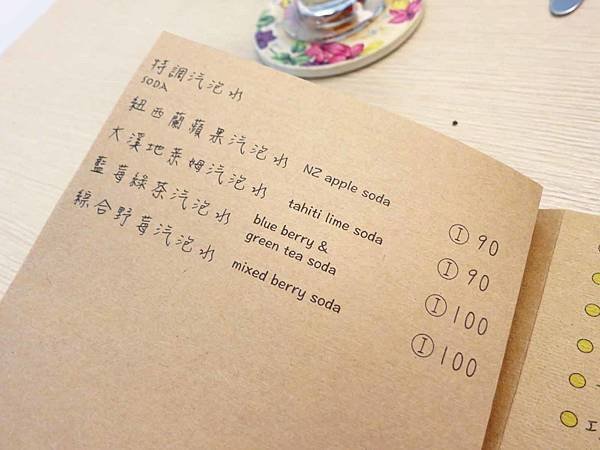 特調汽泡水
SODA
紐西蘭蘋果汽泡水 NZ apple soda Ⓘ 90
大溪地萊姆汽泡水 tahiti lime soda Ⓘ 90
藍莓綠茶汽泡水 blue berry &
green tea soda Ⓘ 100
綜合野莓汽泡水 mixed berry soda Ⓘ 100
I